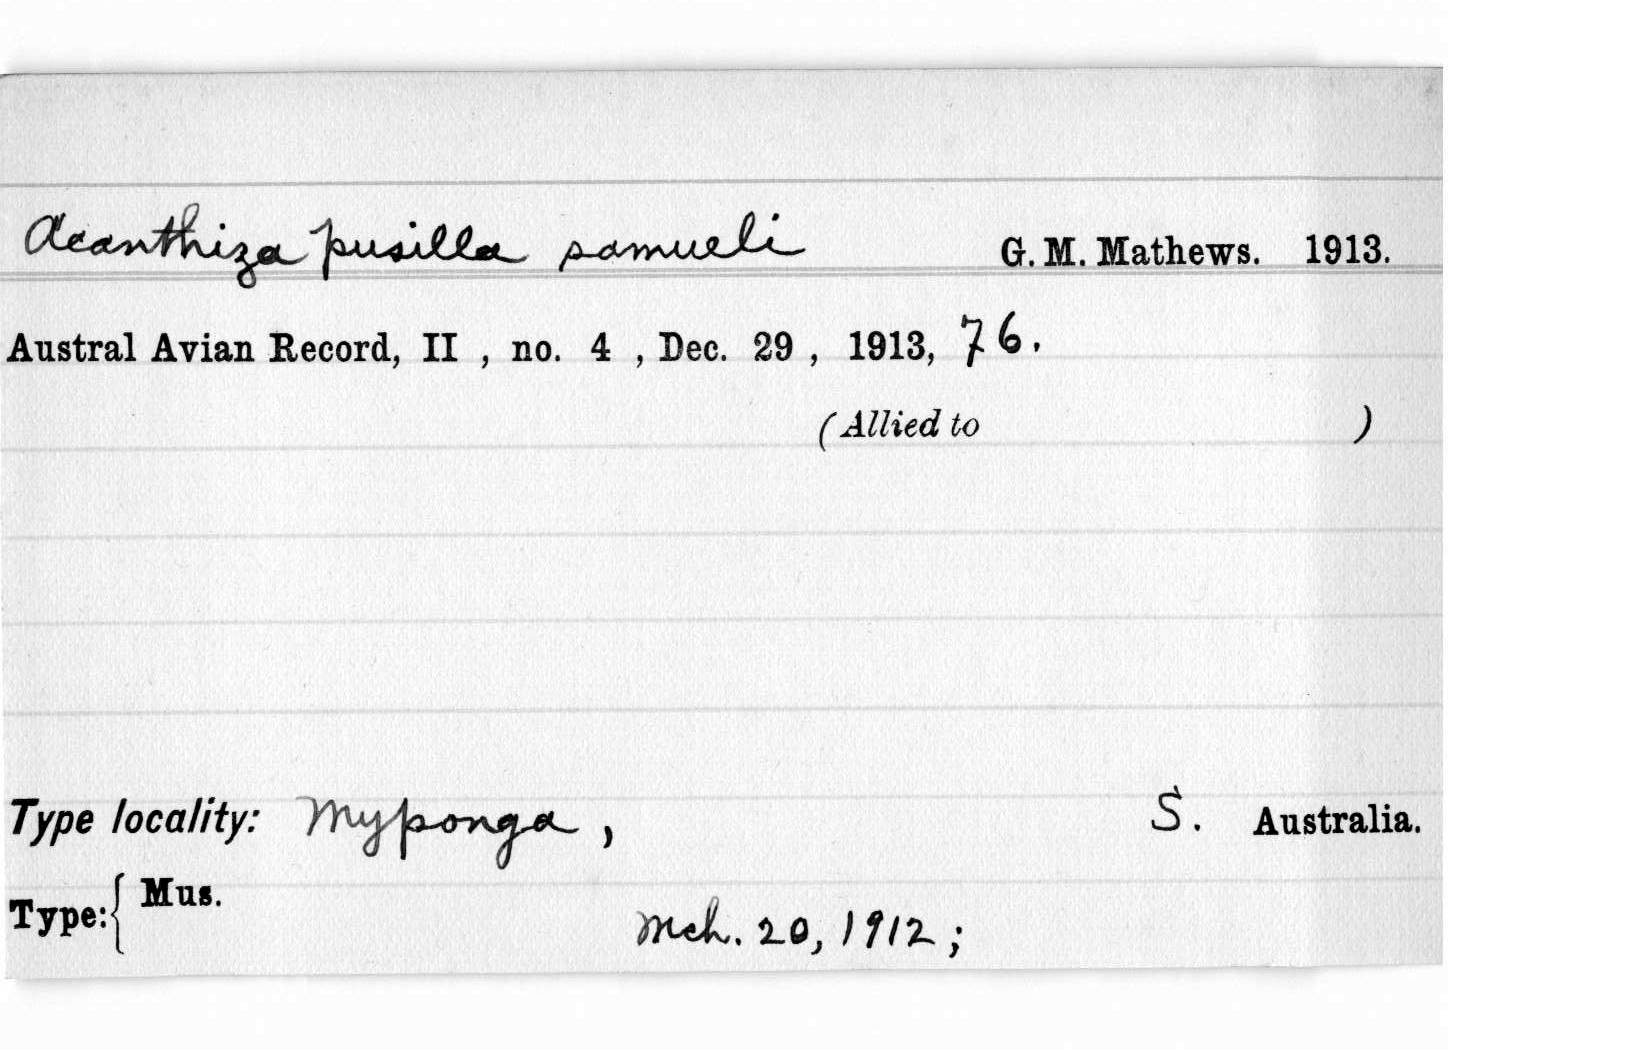 Acanthiza pusilla samueli G. M. Mathews. 1913.
Austral Avian Record, II , no. 4 , Dec. 29 , 1913, 76.
(Allied to )
Type locality: Myponga , S. Australia.
Type: { Mus.
Mch. 20, 1912 ;